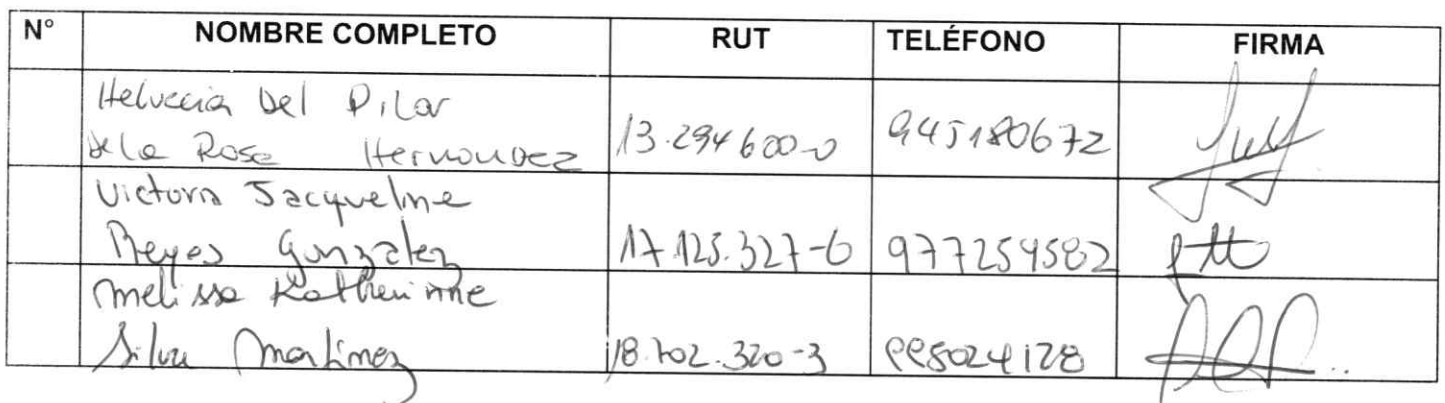 N° NOMBRE COMPLETO RUT TELÉFONO FIRMA
Helvecia Del Pilar
de la Rosa Hernandez 13.294600-0 945180672
Victoria Jacqueline
Reyes Gonzalez 17.125.327-6 977254582
Melissa Katherinne
Silva Martinez 18.702.320-3 998024128